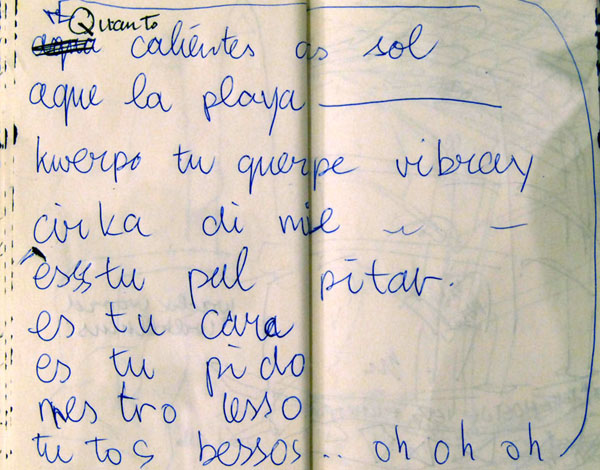 Quanto
calientes as sol
aque la playa
kwerpo tu querpe vibray
cirka di mie
esstu pal pitar.
es tu cara
es tu pido
nes tro usso
tu tos bessos .. oh oh oh